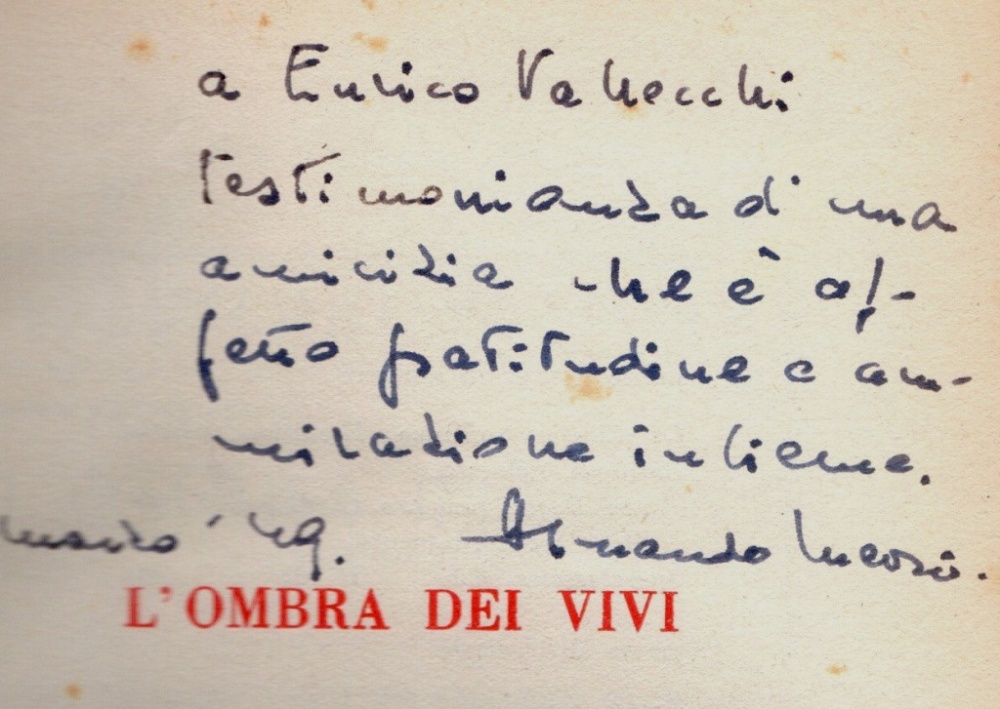 a Enrico Vallecchi
testimonianza di una
amicizia che è af-
fetto gratitudine e am-
mirazione insieme.
marzo '49. Armando Meoni.
L'OMBRA DEI VIVI